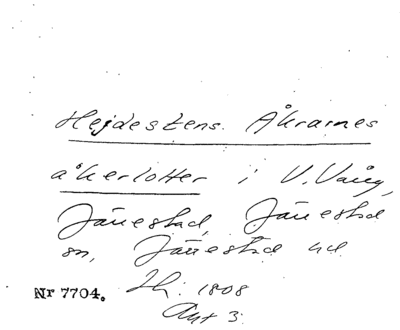 Hejdestens Åkrarnes
åkerlotter i V. Vång,
Järrestad, Järrestad
sn, Järrestad hd
Nr 7704. 1808
Akt 3